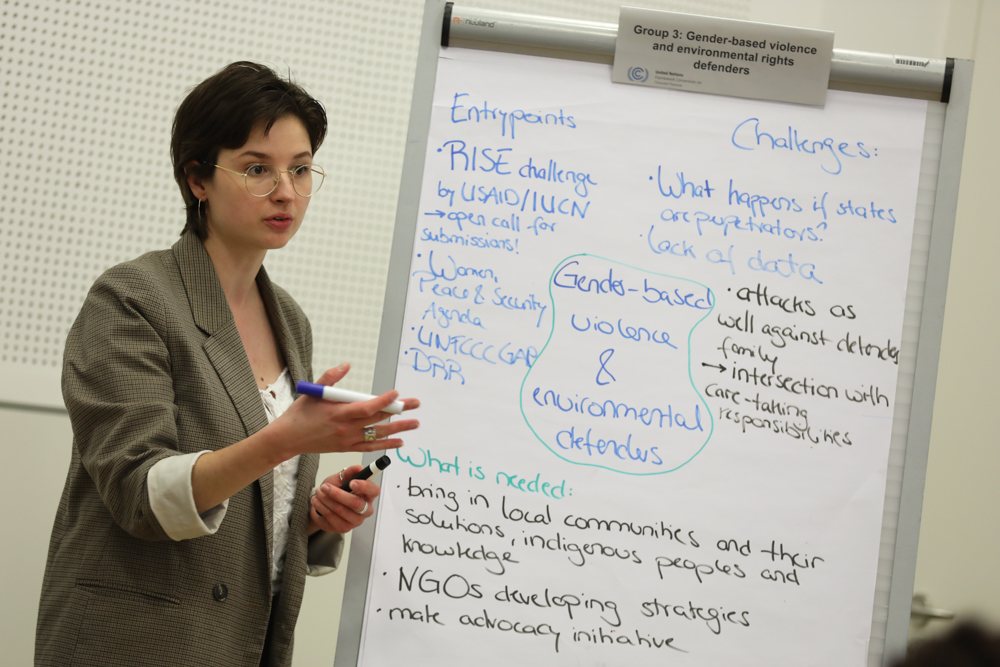 nuuland
Group 3: Gender-based violence
and environmental rights
defenders
United Nations
Framework Convention on
Climate Change
Entrypoints
· RISE challenge
by USAID/IUCN
→ open call for
submissions!
· Women,
Peace & Security
Agenda
· UNFCCC GAP
· DRR
Challenges:
· What happens if states
are perpetrators?
· lack of data
· attacks as
well against defender
family
→ intersection with
care-taking
responsibilities
Gender-based
violence
&
environmental
defenders
What is needed:
· bring in local communities and their
solutions, indigenous peoples and
knowledge
· NGOs developing strategies
· make advocacy initiative